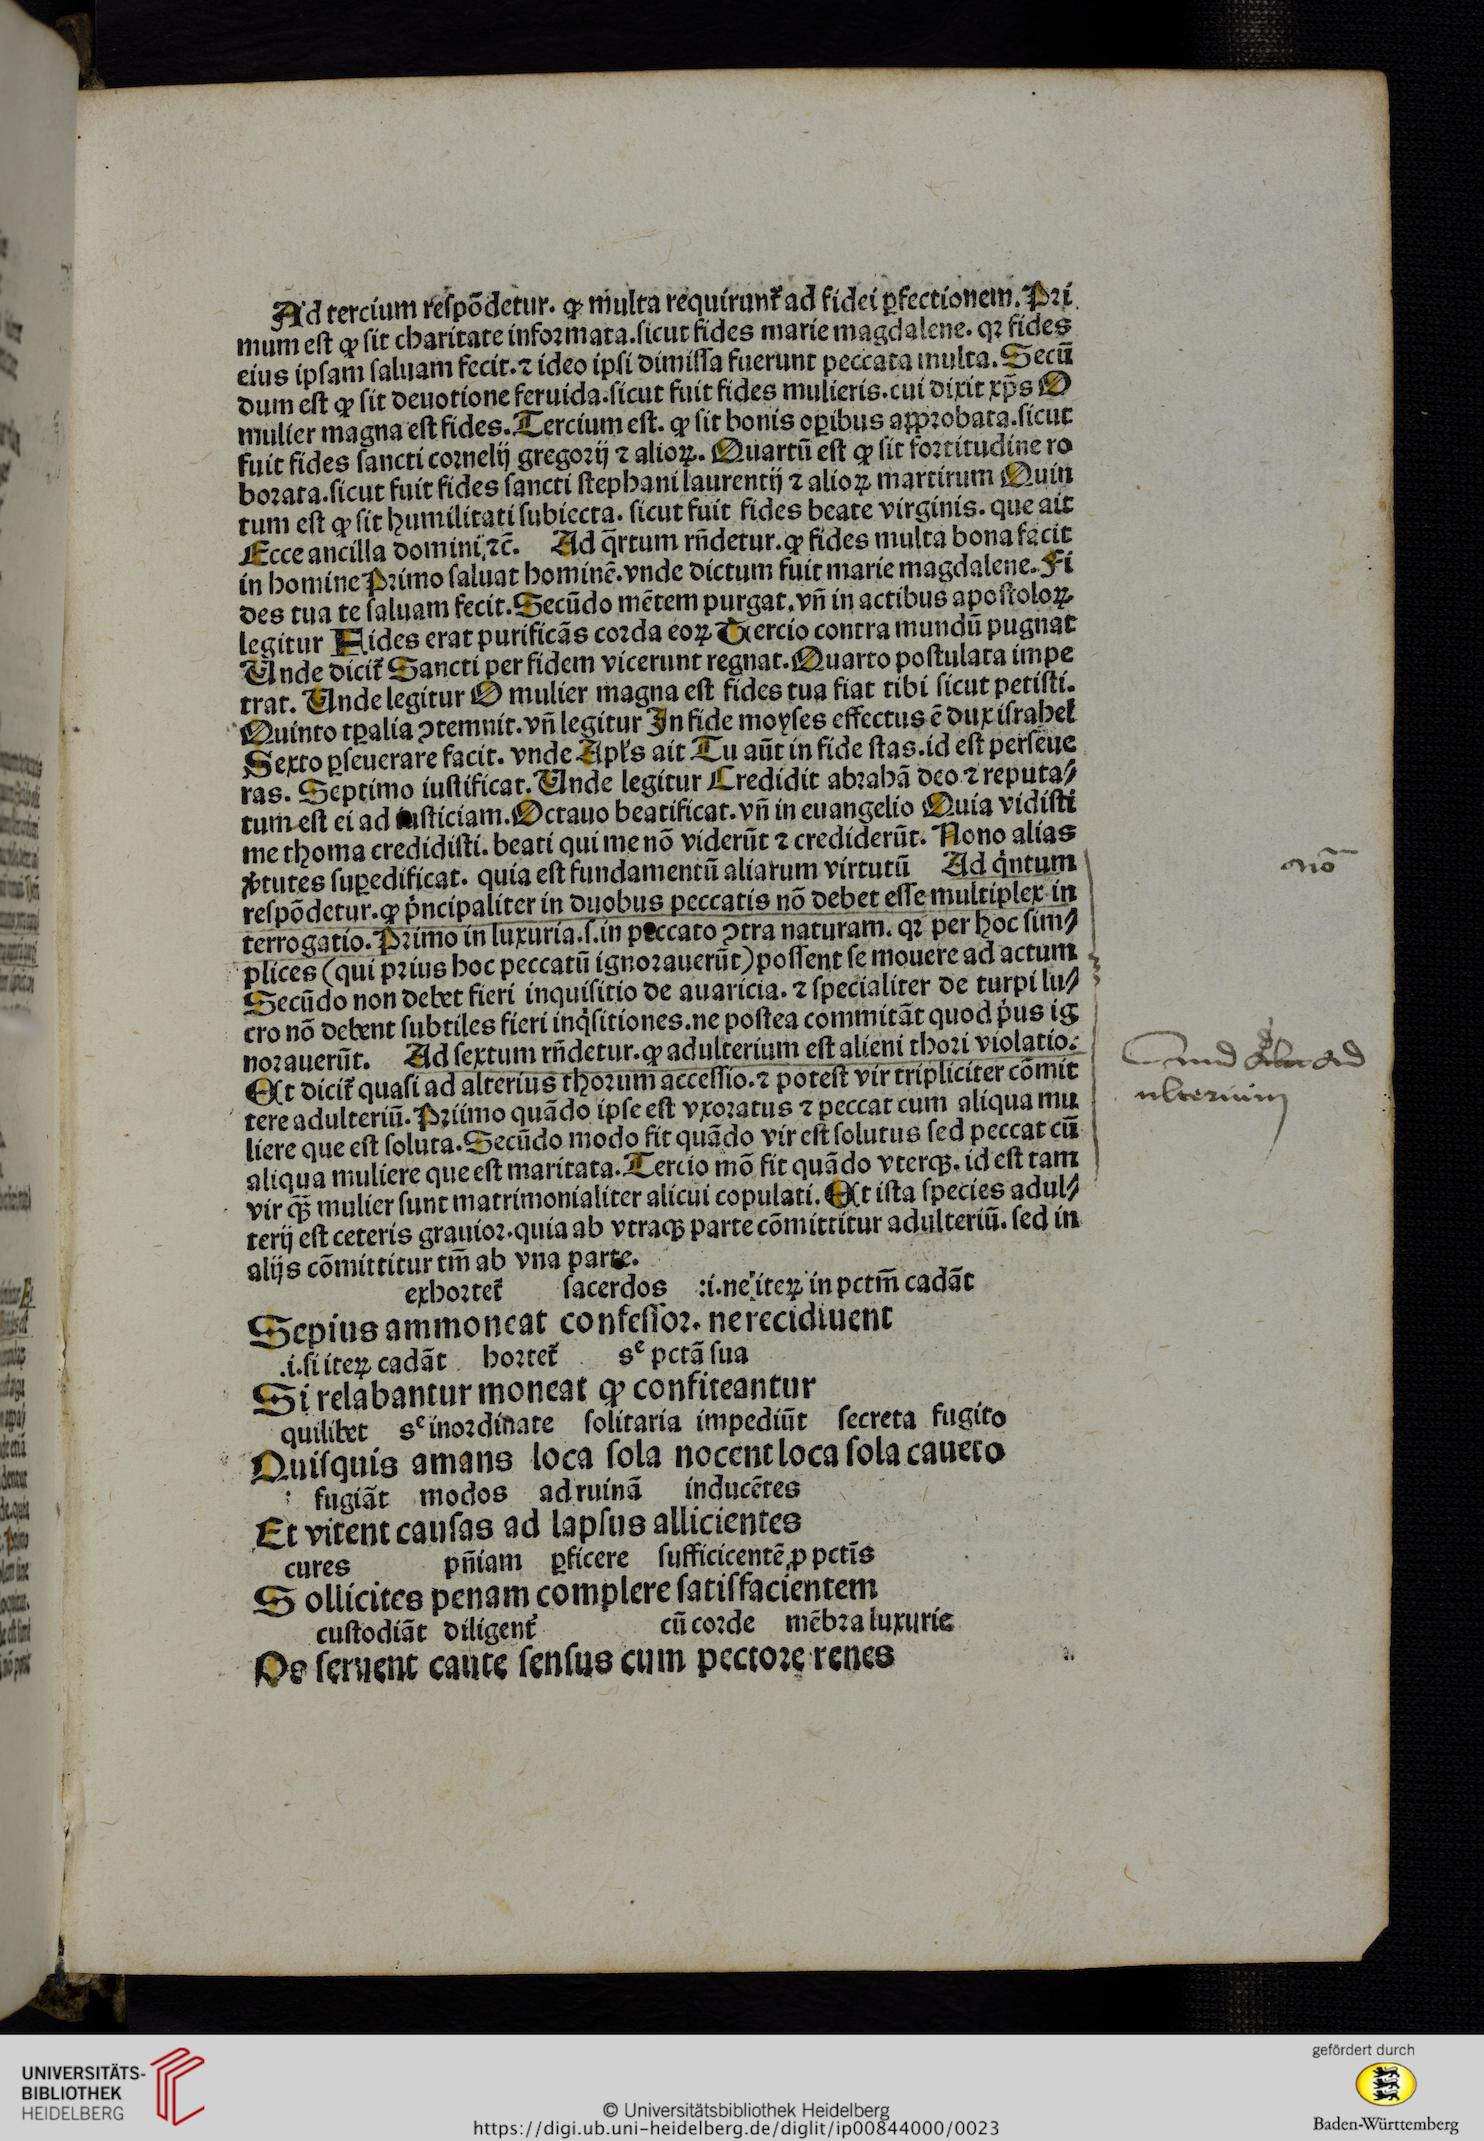 Ad tercium reſpõdetur. ꝙ multa requirunt᷑ ad fidei ꝑfectionem. Pri
mum eſt ꝙ ſit charitate informata. ſicut fides marie magdalene. qꝛ fides
eius ipſam ſaluam fecit. ⁊ ideo ipſi dimiſſa fuerunt peccata multa. Secũ
dum eſt ꝙ ſit deuotione feruida. ſicut fuit fides mulieris. cui dixit xp̃s O
mulier magna eſt fides. Tercium eſt. ꝙ ſit bonis oꝑibus aꝓprobata. ſicut
fuit fides ſancti cornelij gregorij ⁊ alioꝝ. Quartũ eſt ꝙ ſit fortitudine ro
borata. ſicut fuit fides ſancti ſtephani laurentij ⁊ alioꝝ martirum Quin
tum eſt ꝙ ſit humilitati ſubiecta. ſicut fuit fides beate virginis. que ait
Ecce ancilla domini ⁊c̃. Ad q̃rtum rñdetur. ꝙ fides multa bona facit
in homine Primo ſaluat hominẽ. vnde dictum fuit marie magdalene. Fi
des tua te ſaluam fecit. Secũdo mẽtem purgat. vñ in actibus apoſtoloꝝ
legitur Fides erat purificãs corda eoꝝ Tercio contra mundũ pugnat
Unde dicit᷑ Sancti per fidem vicerunt regnat. Quarto poſtulata impe
trat. Unde legitur O mulier magna eſt fides tua fiat tibi ſicut petiſti.
Quinto tꝑalia ꝯtemnit. vñ legitur In fide moyſes effectus ẽ dux iſrahel᷑
Sexto ꝑſeuerare facit. vnde Apl᷑s ait Tu aũt in fide ſtas. id eſt perſeue
ras. Septimo iuſtificat. Unde legitur Credidit abrahã deo ⁊ reputa⸗
tum eſt ei ad iuſticiam. Octauo beatificat. vñ in euangelio Quia vidiſti
me thoma credidiſti. beati qui me nõ viderũt ⁊ crediderũt. Nono alias
v̓tutes ſuꝑedificat. quia eſt fundamentũ aliarum virtutũ Ad qͥntum
reſpõdetur. ꝙ pͥncipaliter in duobus peccatis nõ debet eſſe multiplex in
terrogatio. Primo in luxuria. ſ. in peccato ꝯtra naturam. qꝛ per hoc ſim⸗
plices (qui prius hoc peccatũ ignorauerũt) poſſent ſe mouere ad actum
Secũdo non debet fieri inquiſitio de auaricia. ⁊ ſpecialiter de turpi lu⸗
cro nõ debent ſubtiles fieri inqͥſitiones. ne poſtea commitãt quod pͥus ig
norauerũt. Ad ſextum rñdetur. ꝙ adulterium eſt alieni thori violatio.
Et dicit᷑ quaſi ad alterius thorum acceſſio. ⁊ poteſt vir tripliciter cõmit
tere adulteriũ. Priimo quãdo ipſe eſt vxoratus ⁊ peccat cum aliqua mu
liere que eſt ſoluta. Secũdo modo fit quãdo vir eſt ſolutus ſed peccat cũ
aliqua muliere que eſt maritata. Tercio mõ fit quãdo vterqꝫ. id eſt tam
vir qꝫ̃ mulier ſunt matrimonialiter alicui copulati. Et iſta ſpecies adul⸗
terij eſt ceteris grauior. quia ab vtraqꝫ parte cõmittitur adulteriũ. ſed in
alijs cõmittitur tm̃ ab vna parte.
exhortet᷑ ſacerdos .i. ne iteꝝ in pctm̃ cadãt
Sepius ammoneat confeſſor. ne recidiuent
.i. ſi iteꝝ cadãt hortet᷑ sͤ pctã ſua
Si relabantur moneat ꝙ confiteantur
quilibet sͤ inordinate ſolitaria impediũt ſecreta fugito
Quiſquis amans loca ſola nocent loca ſola caueto
fugiãt modos ad ruinã inducẽtes
Et vitent cauſas ad lapſus allicientes
cures pñiam ꝑficere ſufficicentẽ ꝓ pctis̃
Sollicites penam complere ſatiſfacientem
cuſtodiãt diligent᷑ cũ corde mẽbra luxurie
Os ſeruent caute ſenſus cum pectore renes
nõ
ad
ulterium
UNIVERSITÄTS-
BIBLIOTHEK
HEIDELBERG
© Universitätsbibliothek Heidelberg
https://digi.ub.uni-heidelberg.de/diglit/ip00844000/0023
gefördert durch
Baden-Württemberg